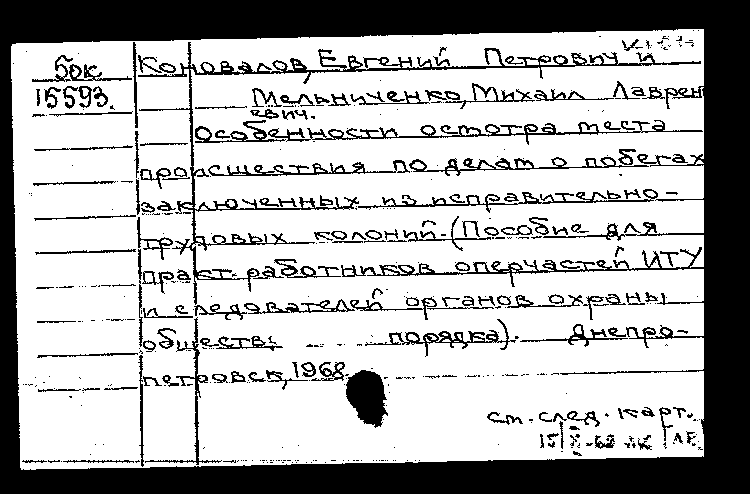 Бок.
15593.
Коновалов, Евгений Петрович и
Мельниченко, Михаил Лаврен
евич.
Особенности осмотра места
происшествия по делам о побегах
заключенных из исправительно-
трудовых колоний. (Пособие для
практ. работников оперчастей ИТУ
и следователей органов охраны
обществ. порядка). Днепро-
петровск, 1968.
см. след. карт.
15/X-68